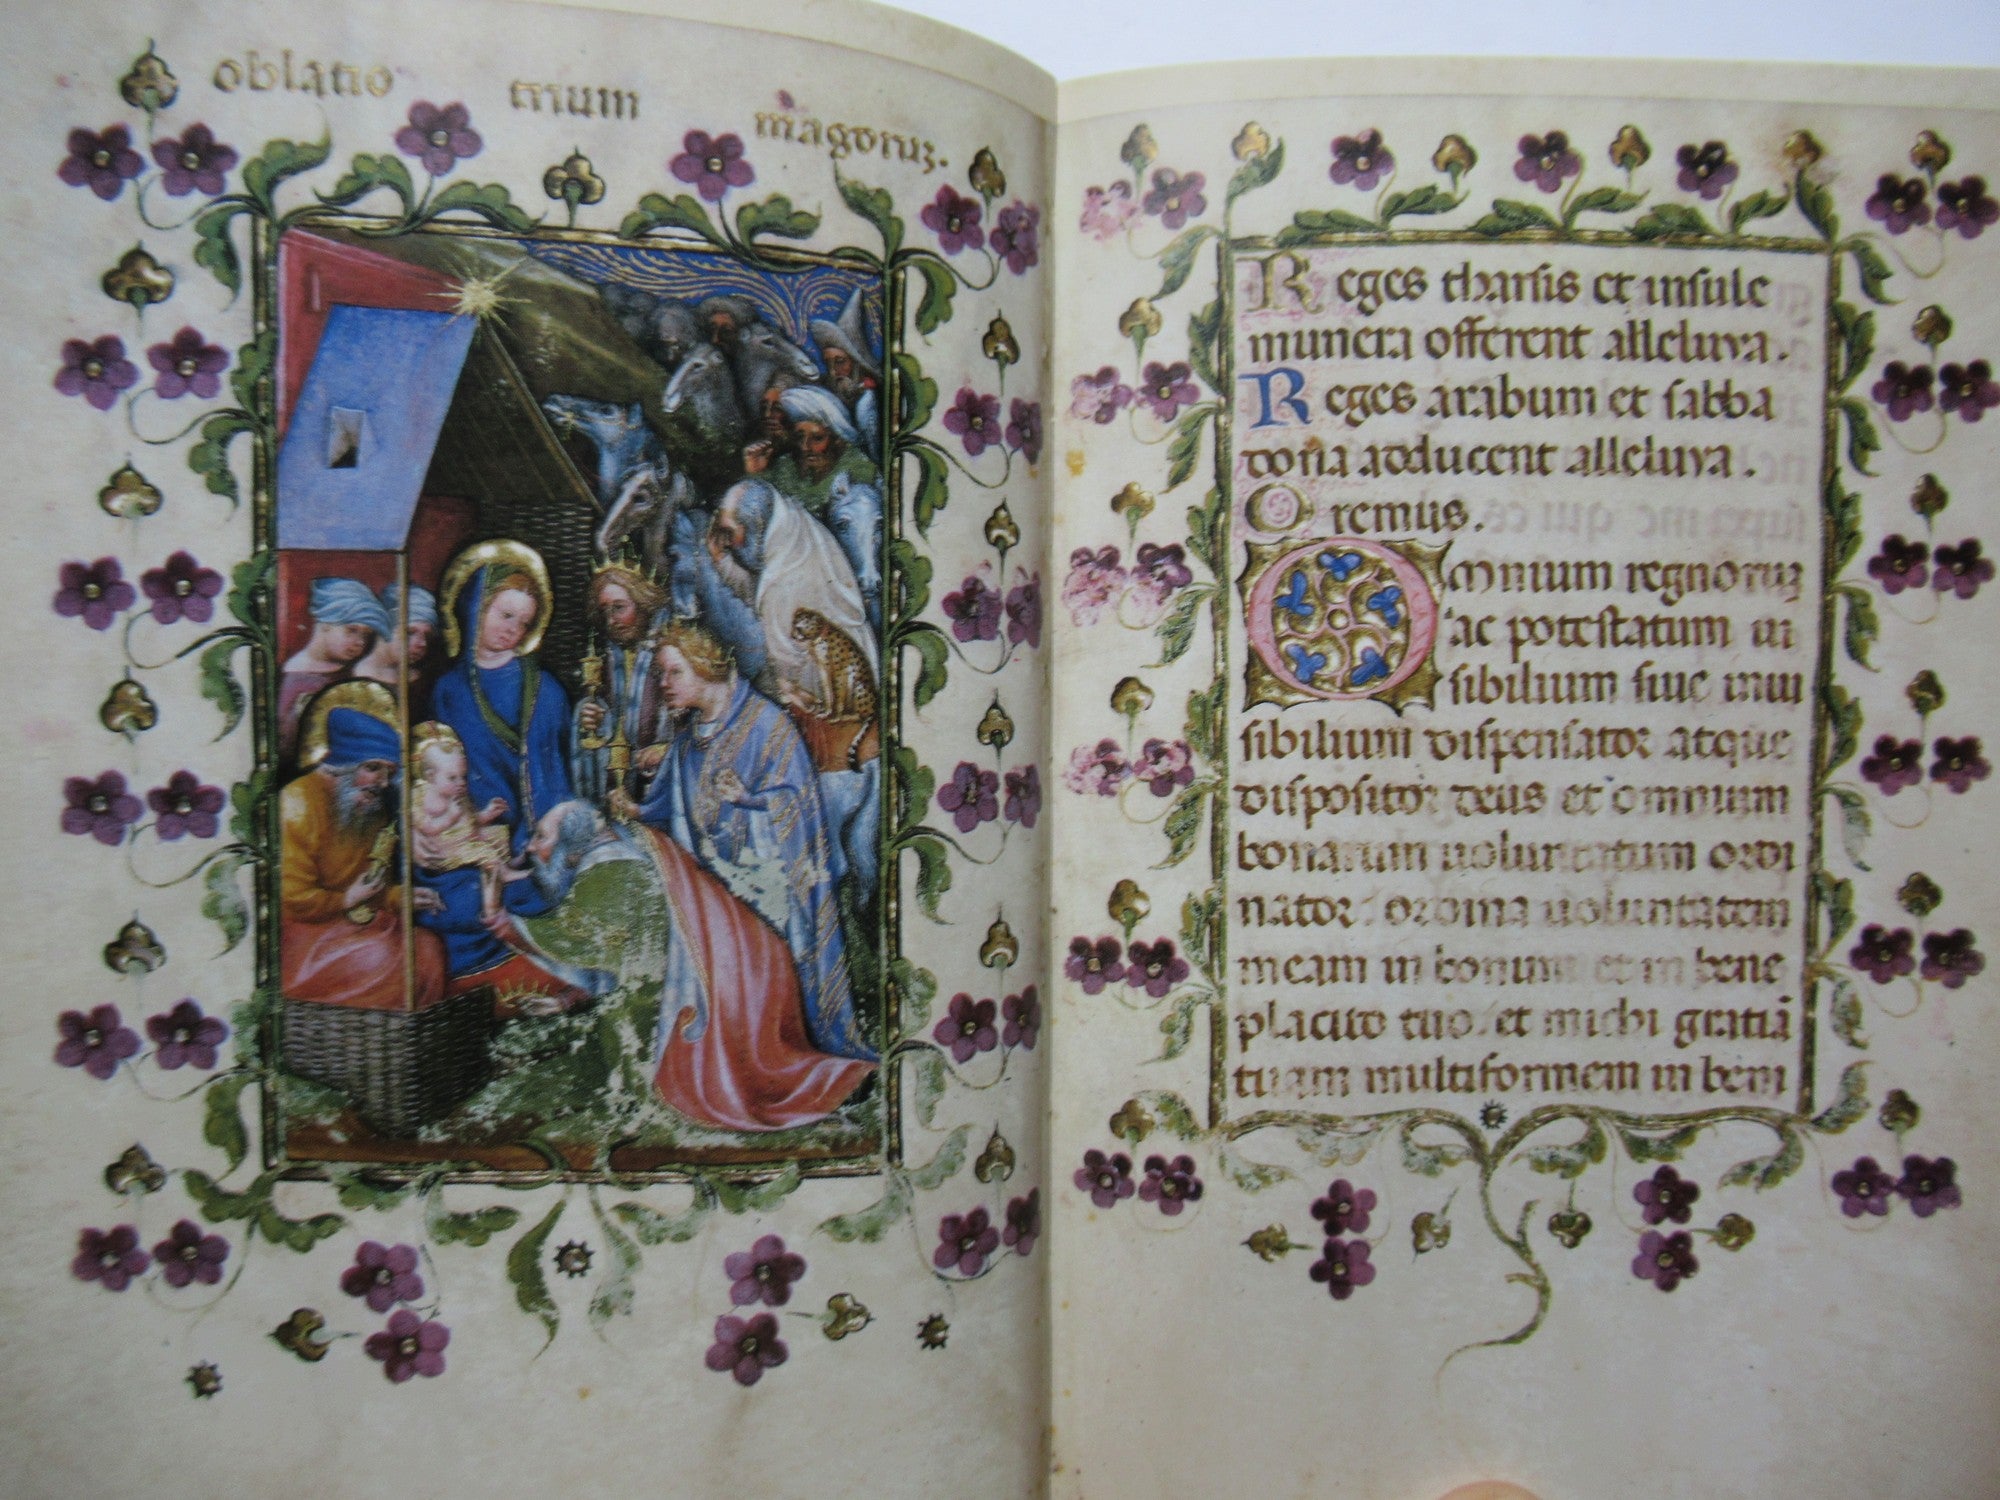 oblatio trium magoruꝫ.
Reges tharsis et insule
munera offerent alleluya.
Reges arabum et sabba
dona adducent alleluya.
Oremus.
Omnium regnoruꝫ
ac potestatum in
sibilium siue inui
sibilium dispensator atque
dispositor deus et omnium
bonarum uoluntatum ordi
nator: ordina uoluntatem
meam in bonum et in bene
placito tuo. et michi gratiā
tuam multiformem in beni